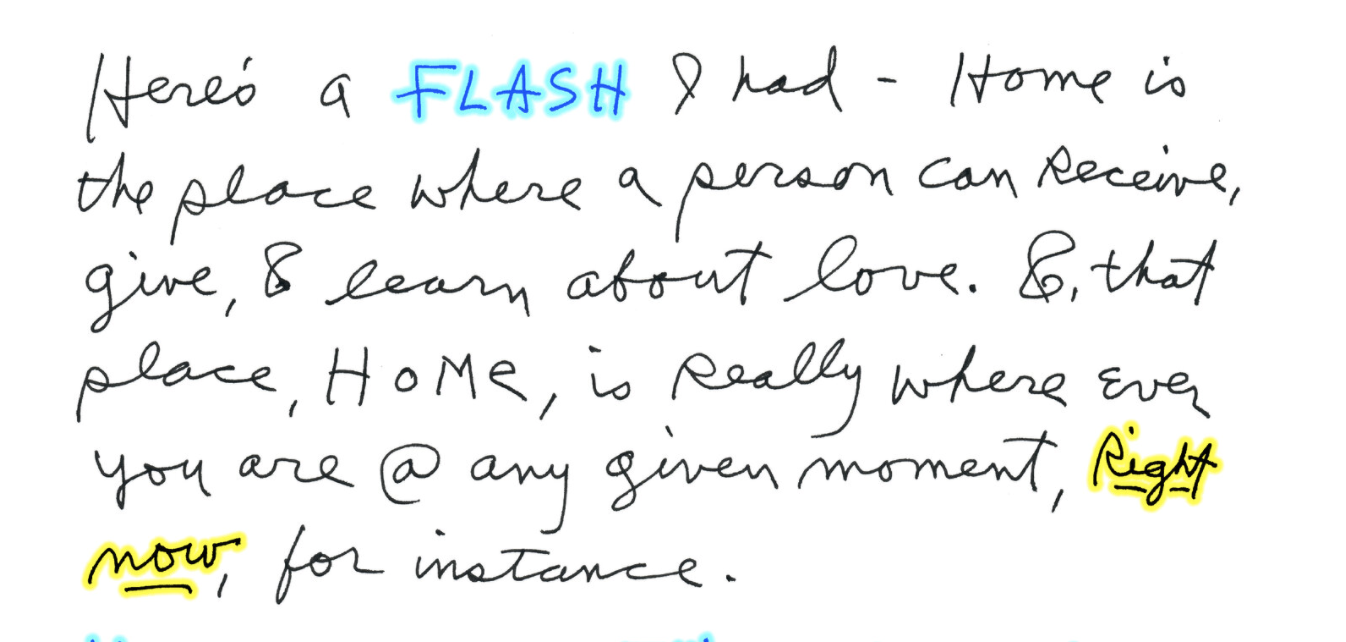 Here's a FLASH I had - Home is
the place where a person can Receive,
give, & learn about love. &, that
place, HOMe, is Really where Ever
you are @ any given moment, Right
now, for instance.